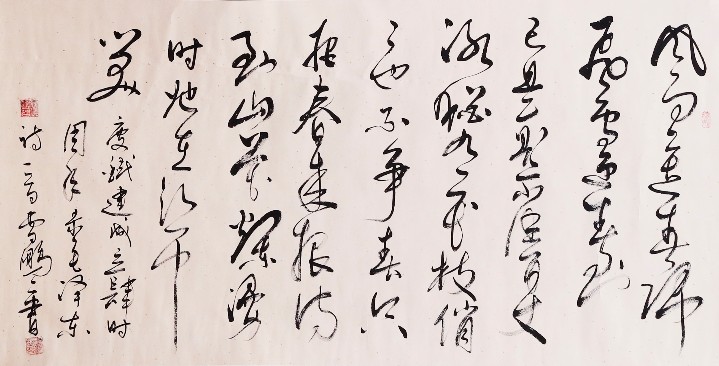 风雨送春归
飞雪迎春到
已是悬崖百丈
冰犹有花枝俏
々也不争春只
把春来报待
到山花烂漫
时她在丛中
笑
庆铁建成立肆
周年录毛泽东
诗一首 鹏书